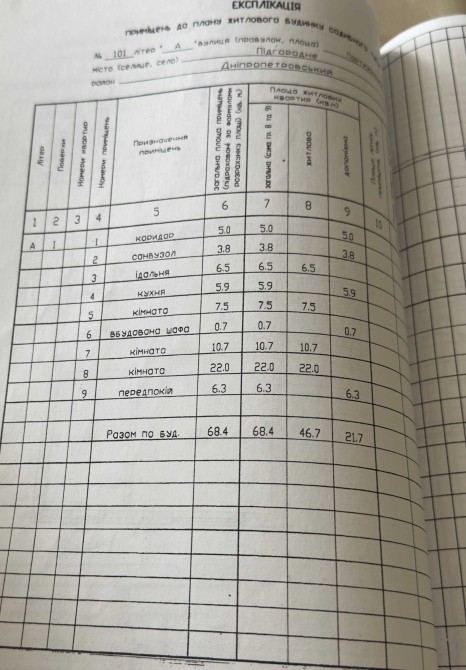 ЕКСПЛІКАЦІЯ
приміщень до плану житлового будинку садибного
№ 101 літер " А " вулиця (провулок, площа)
місто (селище, село) Підгородне
район Дніпропетровський
Літер
Поверхи
Номери квартир
Номери приміщень
Призначення приміщень
загальна площа приміщень (підрахована за формулами розрахунку площ) (кв. м)
Площа житлових квартир (кв.м)
загальна (сума гр. 8 та 9)
житлова
допоміжна
1 2 3 4 5 6 7 8 9 10
А I 1 коридор 5.0 5.0 5.0
2 санвузол 3.8 3.8 3.8
3 їдальня 6.5 6.5 6.5
4 кухня 5.9 5.9 5.9
5 кімната 7.5 7.5 7.5
6 вбудована шафа 0.7 0.7 0.7
7 кімната 10.7 10.7 10.7
8 кімната 22.0 22.0 22.0
9 передпокій 6.3 6.3 6.3
Разом по буд. 68.4 68.4 46.7 21.7